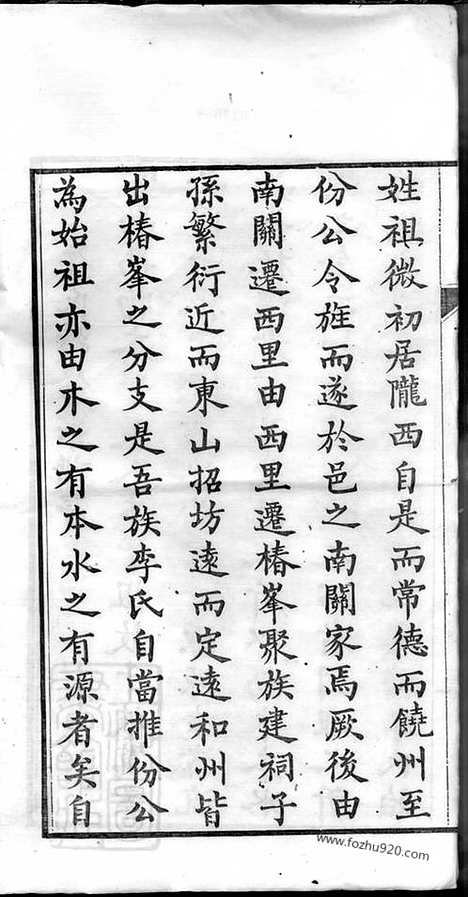 姓祖微初居隴西自是而常德而饒州至
份公令旌而遂於邑之南關家焉厥後由
南關遷西里由西里遷椿峯聚族建祠子
孫繁衍近而東山招坊遠而定遠和州皆
出椿峯之分支是吾族李氏自當推份公
為始祖亦由木之有本水之有源者矣自
www.fozhu920.com